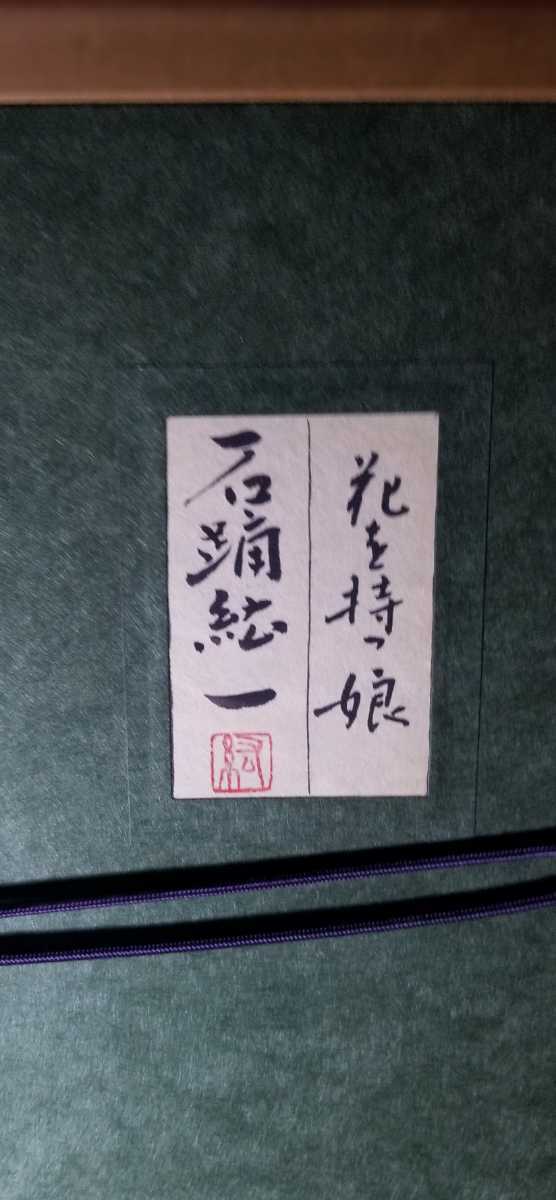 花を持つ娘
石踊紘一
紘